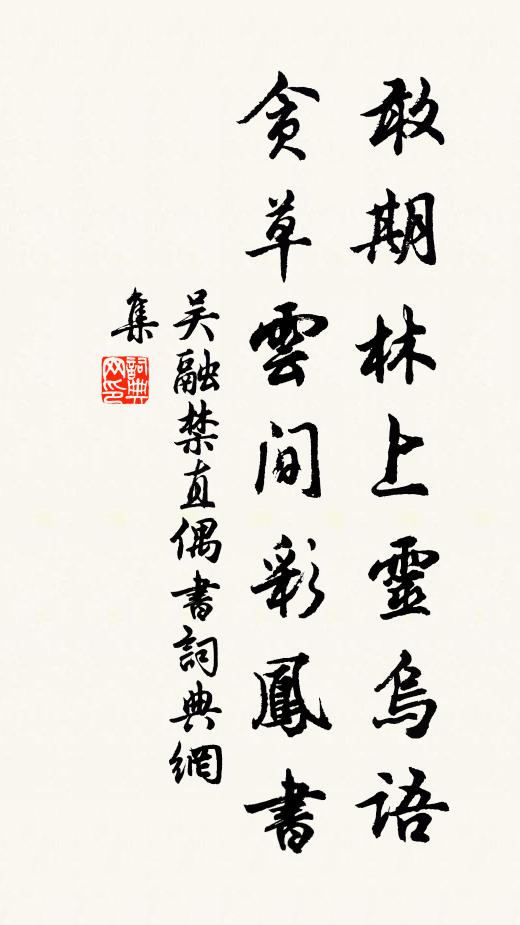 敢期林上靈烏語
貪草雲間彩鳳書
吴融禁直偶書詞典網
集
詞典
网印